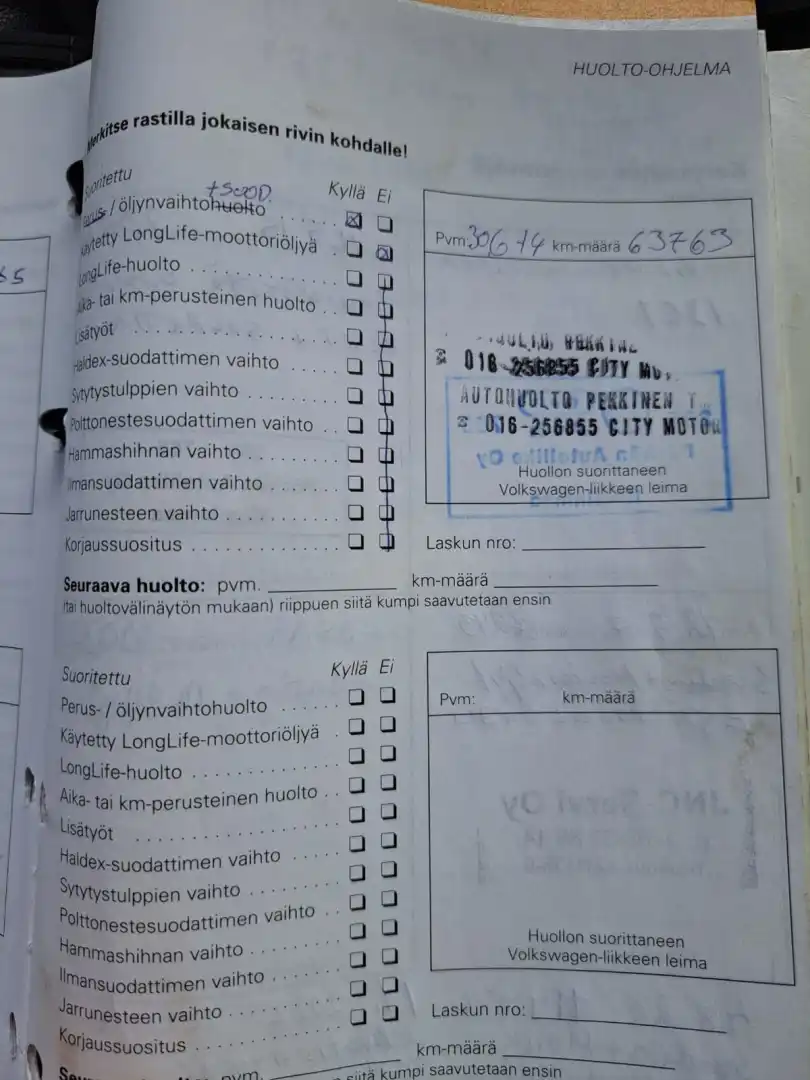 HUOLTO-OHJELMA
Merkitse rastilla jokaisen rivin kohdalle!
Suoritettu Kyllä Ei
+SUOD.
Perus- / öljynvaihtohuolto . . . . . .
Käytetty LongLife-moottoriöljyä .
LongLife-huolto . . . . . . . . . . .
Aika- tai km-perusteinen huolto . .
Lisätyöt . . . . . . . . . . . . . . .
Haldex-suodattimen vaihto . . . . .
Sytytystulppien vaihto . . . . . . . .
Polttonestesuodattimen vaihto . .
Hammashihnan vaihto . . . . . . . .
Ilmansuodattimen vaihto . . . . . . .
Jarrunesteen vaihto . . . . . . . . . .
Korjaussuositus . . . . . . . . . . . . .
Pvm: 30614 km-määrä 63763
016-256855 CITY
AUTOHUOLTO PEKKINEN T
☎ 016-256855 CITY MOTOR
Huollon suorittaneen
Volkswagen-liikkeen leima
Laskun nro:
Seuraava huolto: pvm. km-määrä
(tai huoltovälinäytön mukaan) riippuen siitä kumpi saavutetaan ensin
Suoritettu Kyllä Ei
Perus- / öljynvaihtohuolto . . . . . .
Käytetty LongLife-moottoriöljyä .
LongLife-huolto . . . . . . . . . . .
Aika- tai km-perusteinen huolto . .
Lisätyöt . . . . . . . . . . . . . . .
Haldex-suodattimen vaihto . . . . .
Sytytystulppien vaihto . . . . . . . .
Polttonestesuodattimen vaihto . .
Hammashihnan vaihto . . . . . . . .
Ilmansuodattimen vaihto . . . . . . .
Jarrunesteen vaihto . . . . . . . . . .
Korjaussuositus . . . . . . . . . . . . .
Pvm: km-määrä
Huollon suorittaneen
Volkswagen-liikkeen leima
Laskun nro:
pvm. km-määrä
siitä kumpi saavutetaan ensin